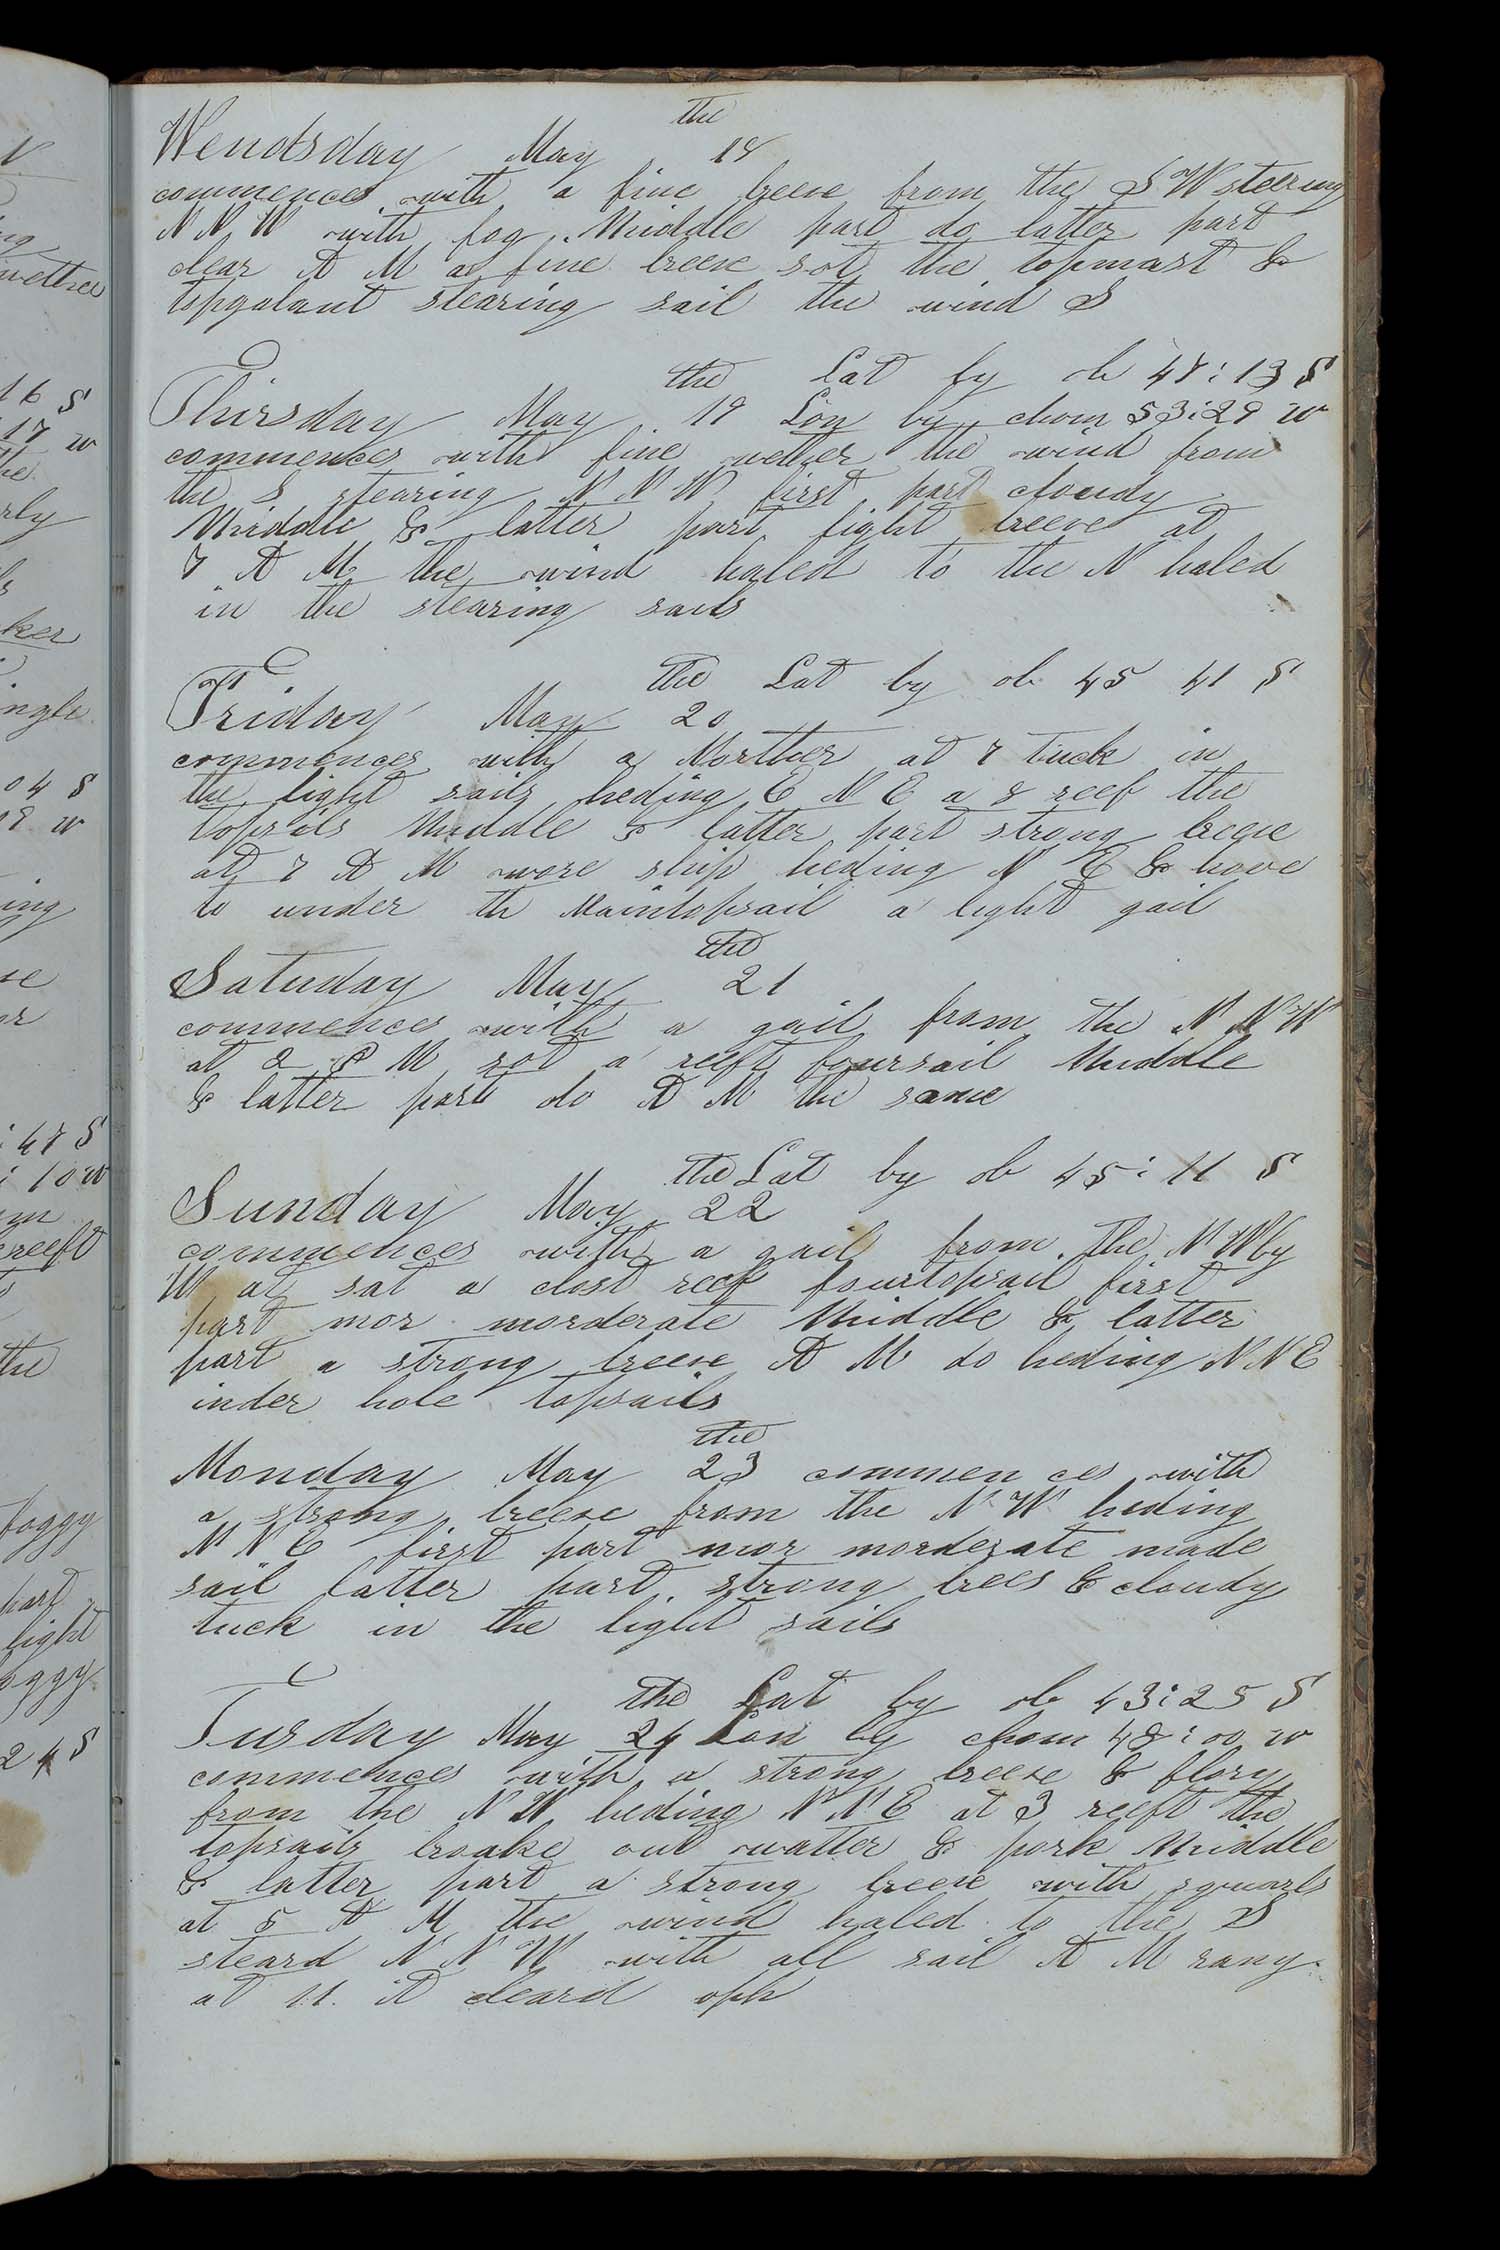 the
Wendsday May 18
commences with a fine breese from the S W steering
N N W with fog Middle part do latter part
clear A M a fine breese sot the topmast &
topgalant stearing sail the wind S
the Lat by ob 47 : 13 S
Thirsday May 19 Lon by chom 53 : 29 w
commences with fine wether the wind from
the S stearing N N W first part cloudy
Middle & latter part light breese at
7 A M the wind haled to the N haled
in the stearing sails
the Lat by ob 45 41 S
Friday May 20
commences with a Norther at 7 tuck in
the light sails heding E N E a 8 reef the
topsails Middle & latter part strong breese
at 7 A M wore ship heding N E & hove
to under th Maintopsail a light gail
the
Satuday May 21
commences with a gail from the N N W
at 2 P M sot a reeft foursail Middle
& latter part do A M the same
the Lat by ob 45 : 11 S
Sunday May 22
commences with a gail from the N W by
W at sat a clost reef fourtopsail first
part mor morderate Middle & latter
part a strong breese A M do heding N N E
inder hole topsails
the
Monday May 23 commences with
a strong breese from the N W heding
N N E first part mor morderate made
sail latter part strong brees & cloudy
tuck in the light sails
the Lat by ob 43 : 25 S
Tusday May 24 Lon by chom 48 : 00 w
commences with a strong breese &
from the N W heding N N E at 3 reeft the
topsails broake out watter & pork Middle
& latter part a strong breese with squarls
at 5 A M the wind haled to the S
steard N N W with all sail A M rany
at 11 it cleard oph